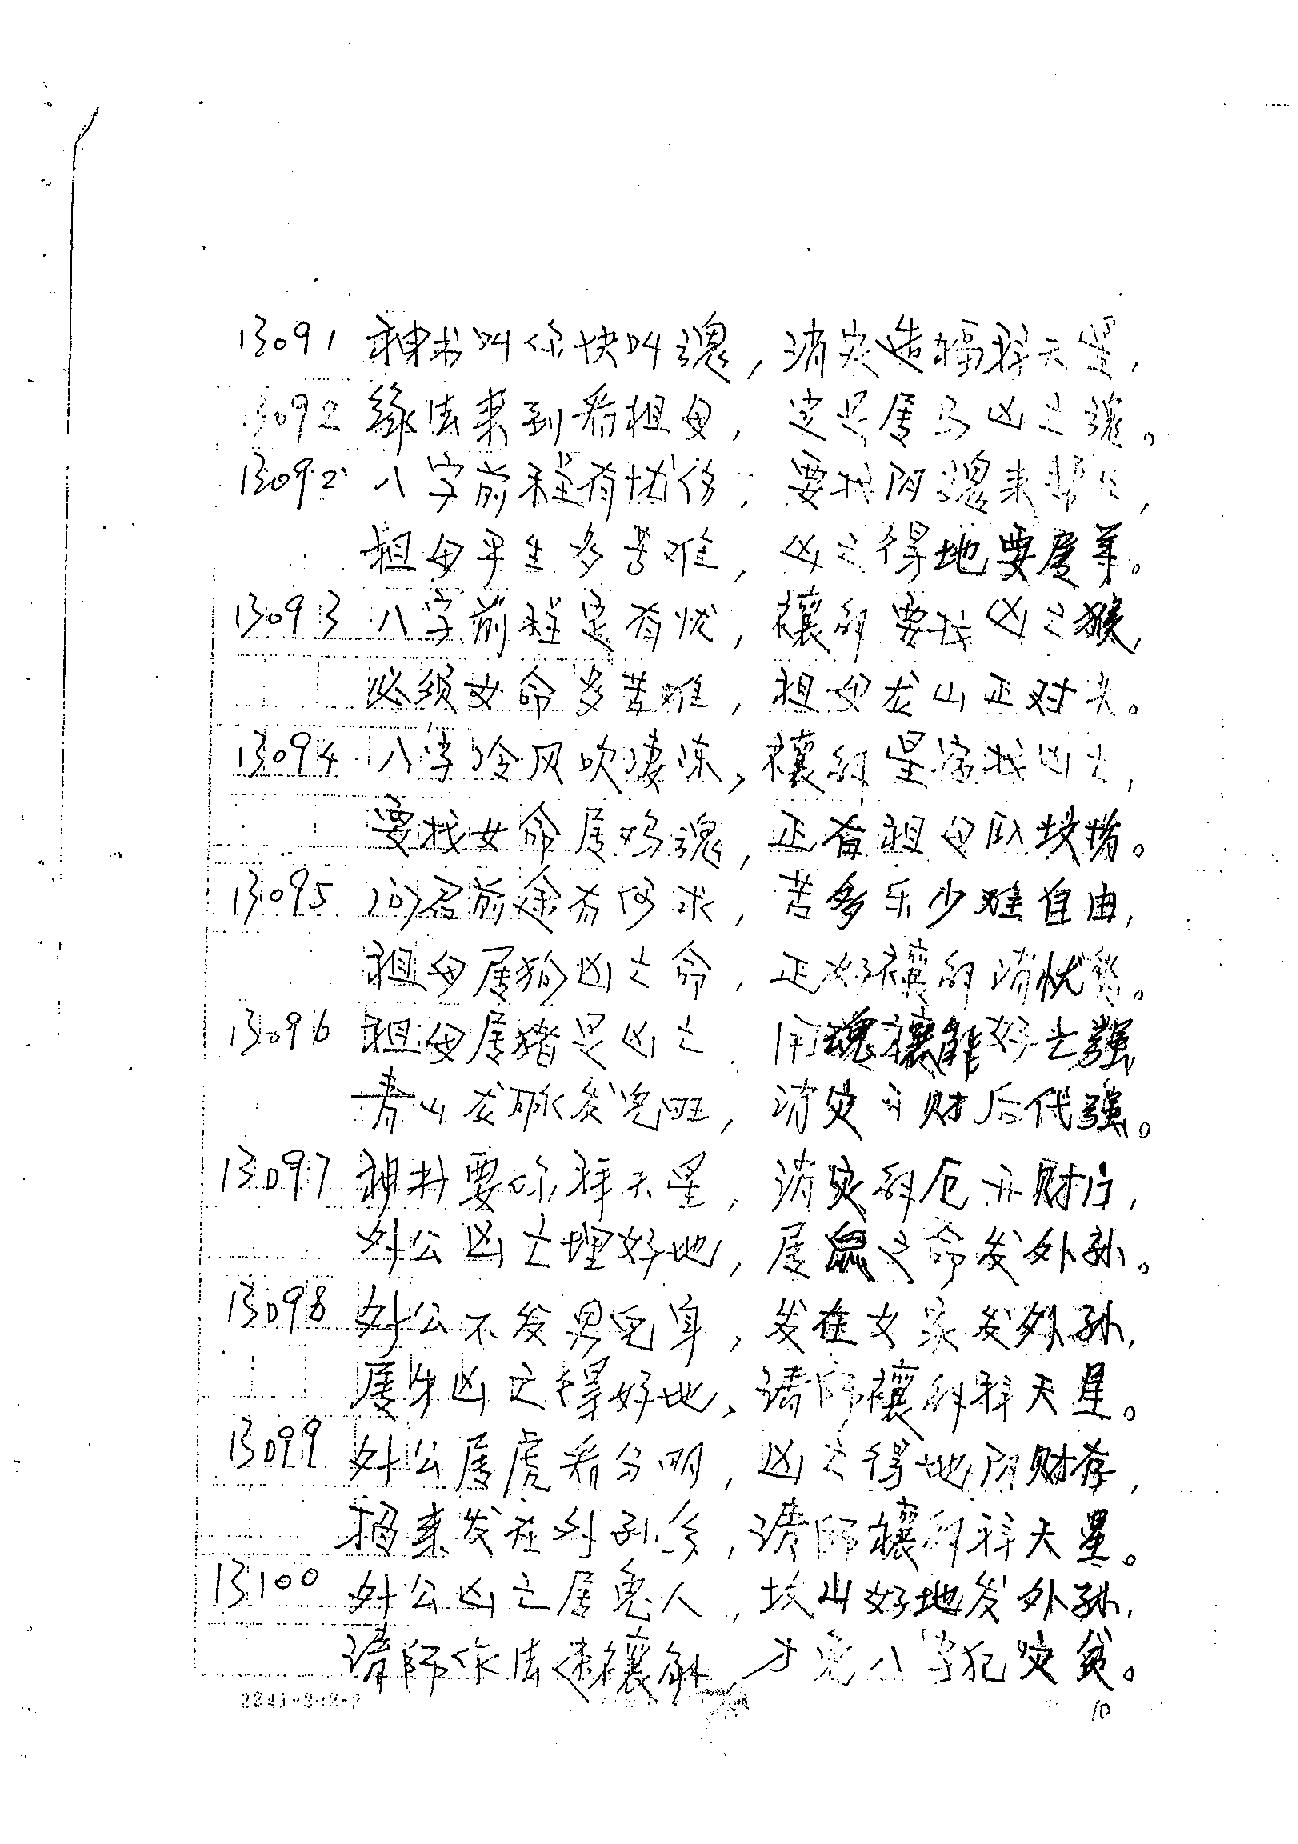 13091 神书叫你快叫魂，消灾造福拜天星，
13092 缘法来到看祖母，定是属马凶亡魂。
13092 八字前程有忧伤，要找阴魂来帮忙，
祖母平生多苦难，凶亡得地要属羊。
13093 八字前程定有忧，禳解要找凶亡猴，
必须女命多苦难，祖母龙山正对头。
13094 八字冷风吹凄凉，禳解星宿找凶亡，
要找女命属鸡魂，正有祖母卧坟堵。
13095 问君前途有何求，苦多乐少难自由，
祖母属狗凶亡命，正好禳解消忧愁。
13096 祖母属猪是凶亡 用魂禳解好亡强
青山龙脉发兔旺，消灾升财后代强。
13097 神书要你拜天星，消灾解厄升财行，
外公凶亡埋好地，属鼠之命发外孙。
13098 外公不发男儿身，发在女家发外孙，
属牛凶亡得好地、请师禳解拜天星。
13099 外公属虎看分明，凶亡得地阴财存，
福来发在外孙多，请师禳解拜天星。
13100 外公凶亡属兔人，坟山好地发外孙，
请师作法速禳解 才免八字犯灾贫。
2241-242-2
10